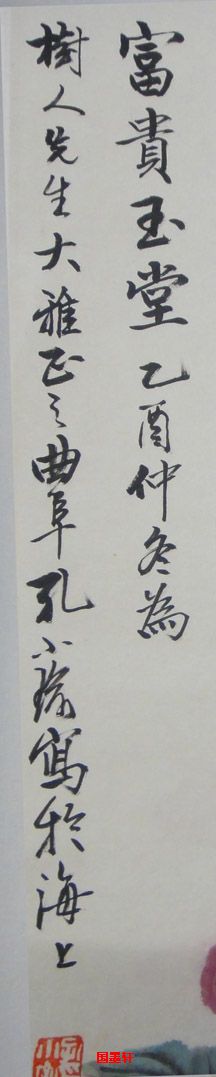 富貴玉堂 乙酉仲冬為
樹人先生大雅正之曲阜孔小瑜寫於海上
国墨轩